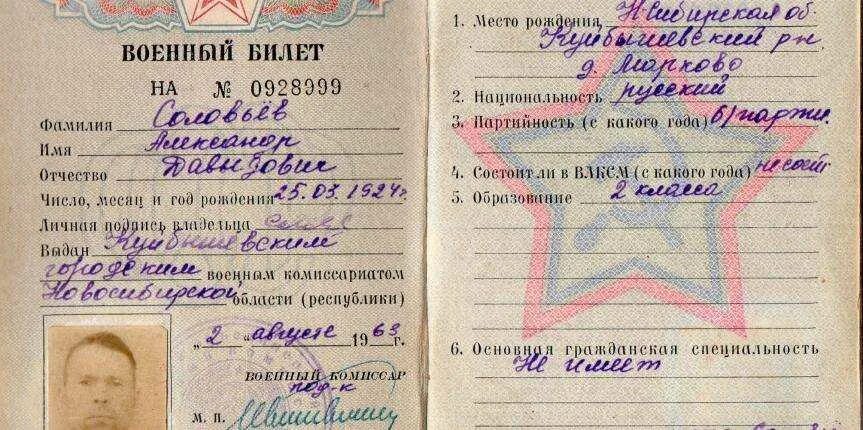 ВОЕННЫЙ БИЛЕТ
НА № 0928999
Фамилия Соловьёв
Имя Александр
Отчество Давыдович
Число, месяц и год рождения 25.03.1924г.
Личная подпись владельца
Выдан Куйбышевским
городским военным комиссариатом
Новосибирской области (республики)
„2" августа 1963 г.
ВОЕННЫЙ КОМИССАР
под-к
М. П.
1. Место рождения Н-Сибирская об.
Куйбышевский р-н.
д. Марково
2. Национальность русский
3. Партийность (с какого года) б/партии.
4. Состоит ли в ВЛКСМ (с какого года) не сост.
5. Образование 2 класса
6. Основная гражданская специальность
Не имеет